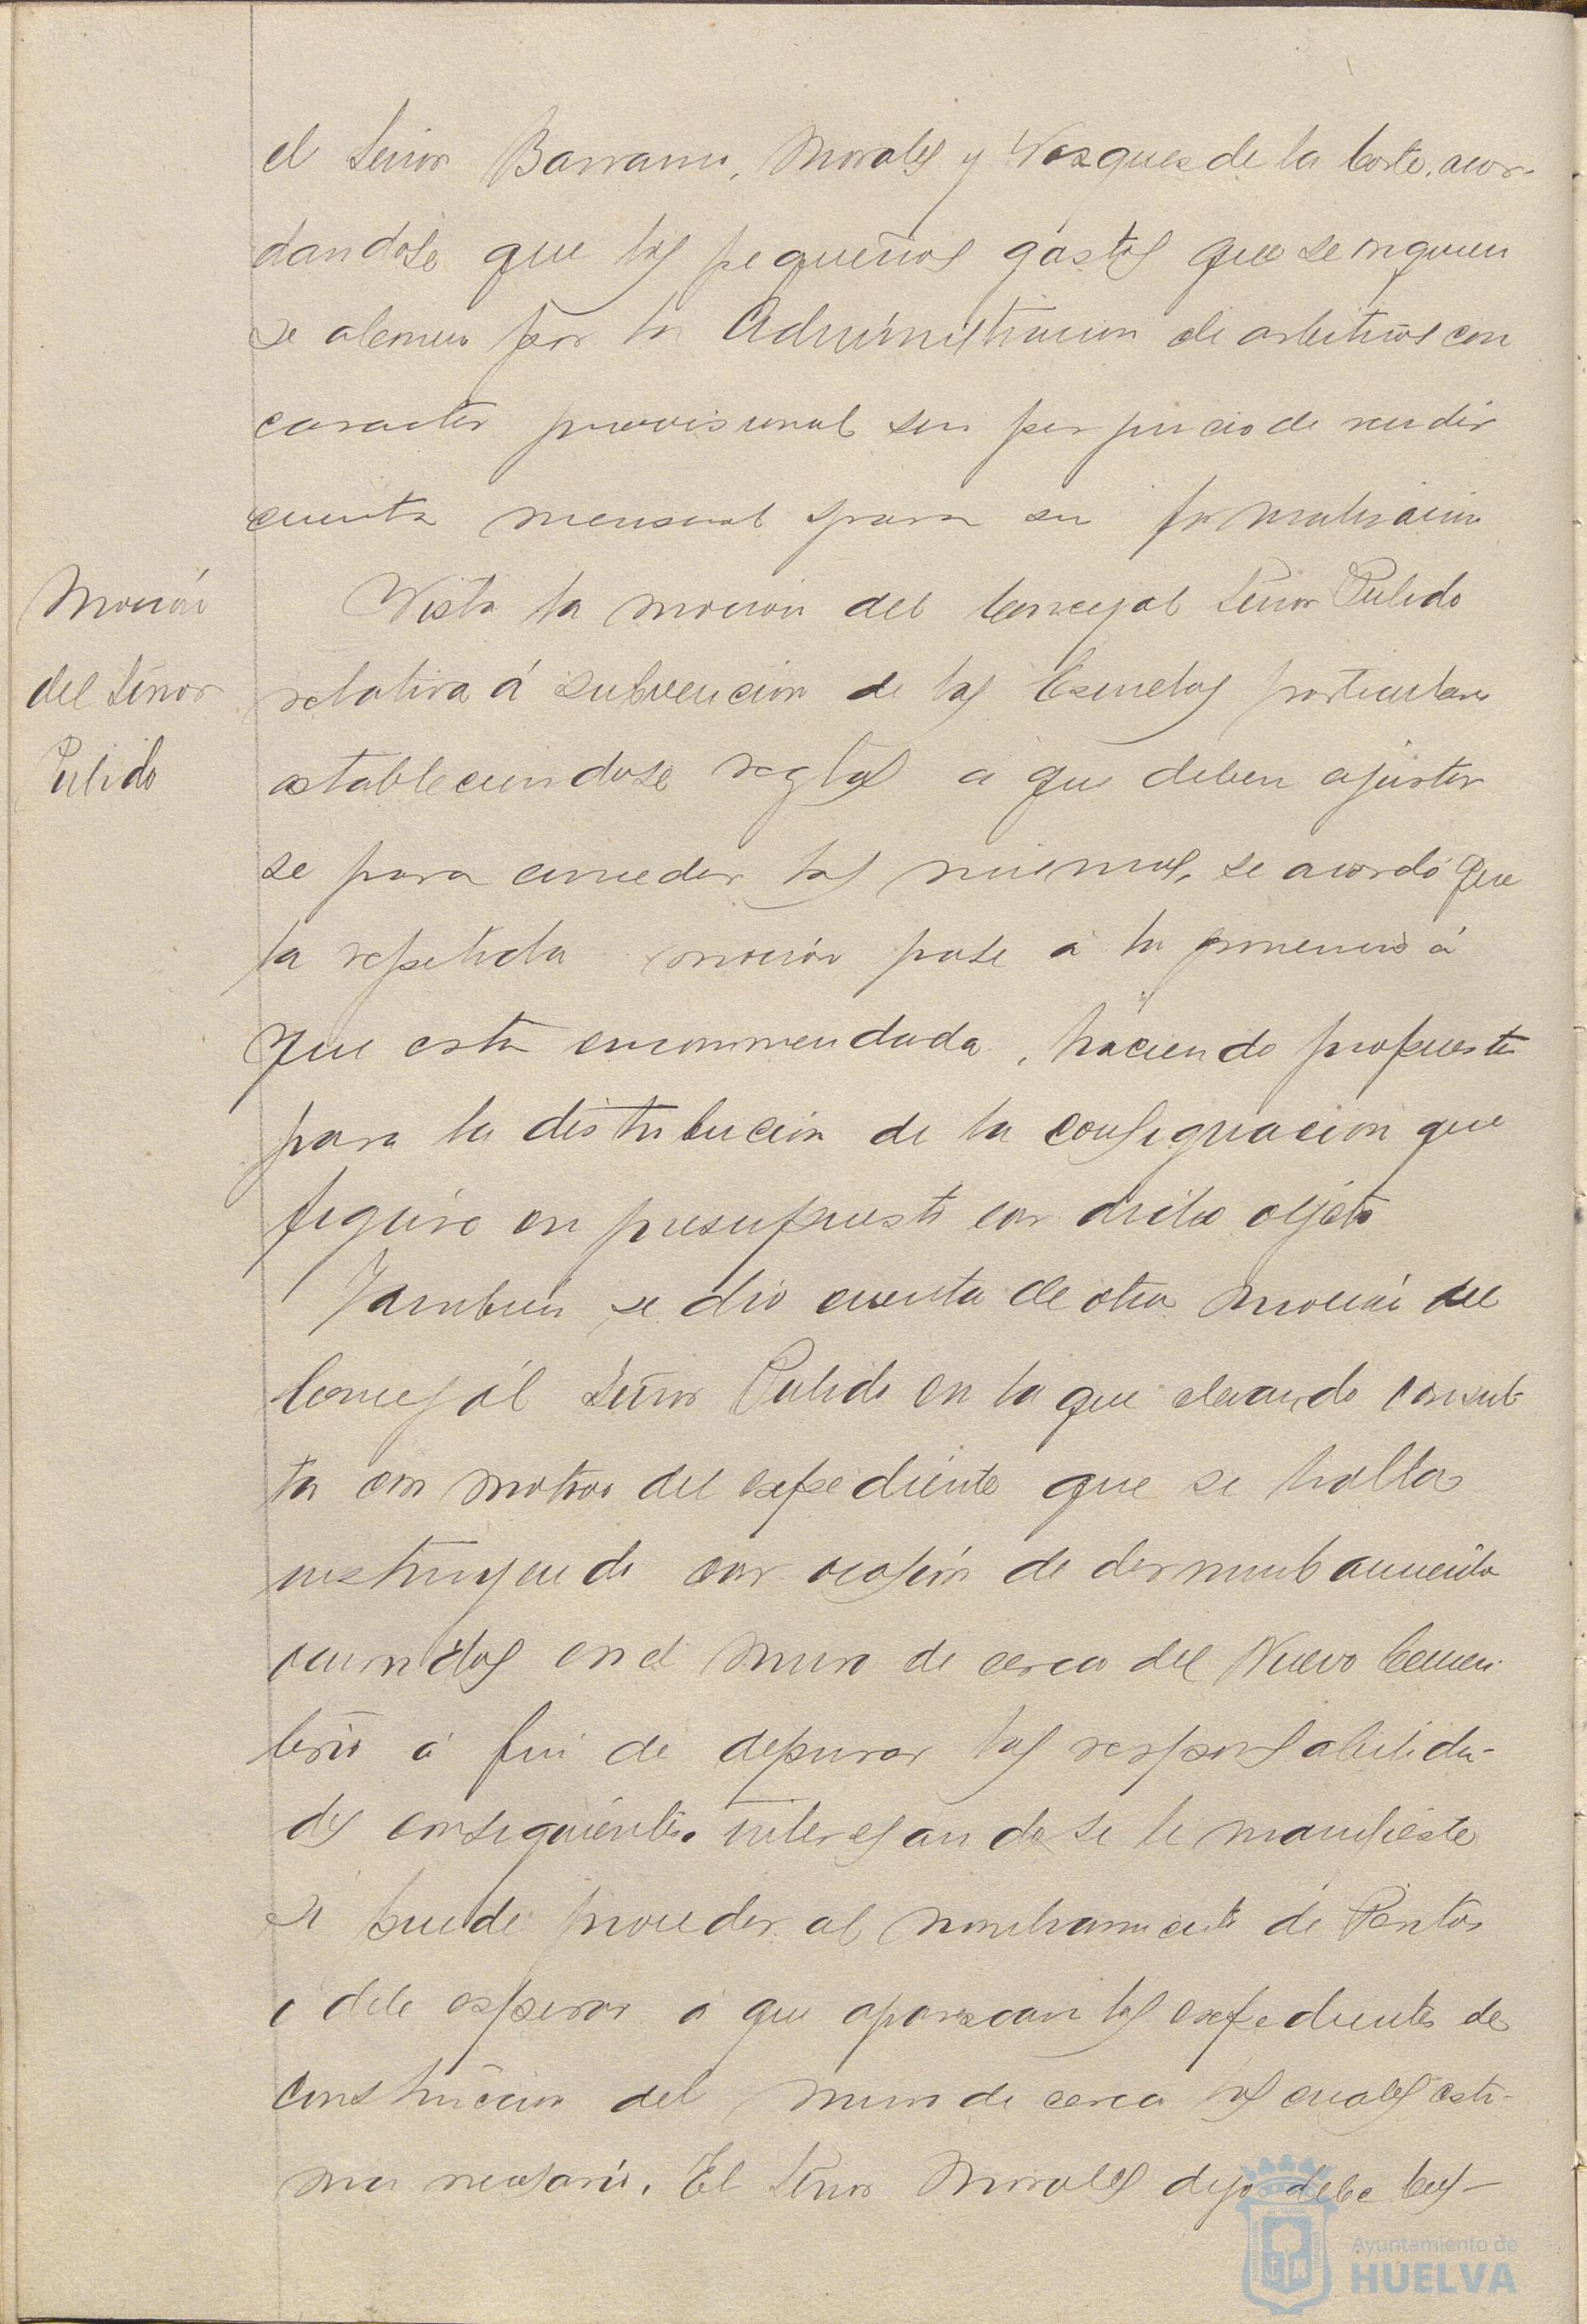 el Señor Barranco, Morales y Vazquez de la Corte, acor-
dandose que los pequeños gastos que se originen
se abonen por la Administracion de arbitrios con
caracter provisional sin perjuicio de rendir
cuenta mensual para su formalización
Moción
del Señor
Pulido
Vista la moción del Concejal Señor Pulido
relativa á subvencion de las Escuelas particulares
estableciendose reglas a que deben ajustar
se para conceder las mismas, se acordó que
la repetida moción pase á la ponencia á
que está encommendada, haciendo propuesta
para la distribucion de la consignacion que
figura en presupuesto con dicho objeto
Tambien se dio cuenta de otra moción del
Concejal Señor Pulido en la que elevando consul
ta con motivo del expediente que se halla
instruyendo con ocasión de derrumbamientos
ocurridos en el muro de cerca del Nuevo Cemen-
terio á fin de depurar las responsabilida-
des consiguientes interesando se le manifieste
si puede proceder al nombramiento de Peritos
ó debe esperar á que aparezcan los expedientes de
construccion del muro de cerca los cuales esti-
ma necesario. El Señor Morales dijo debe bus-
Ayuntamiento de
HUELVA